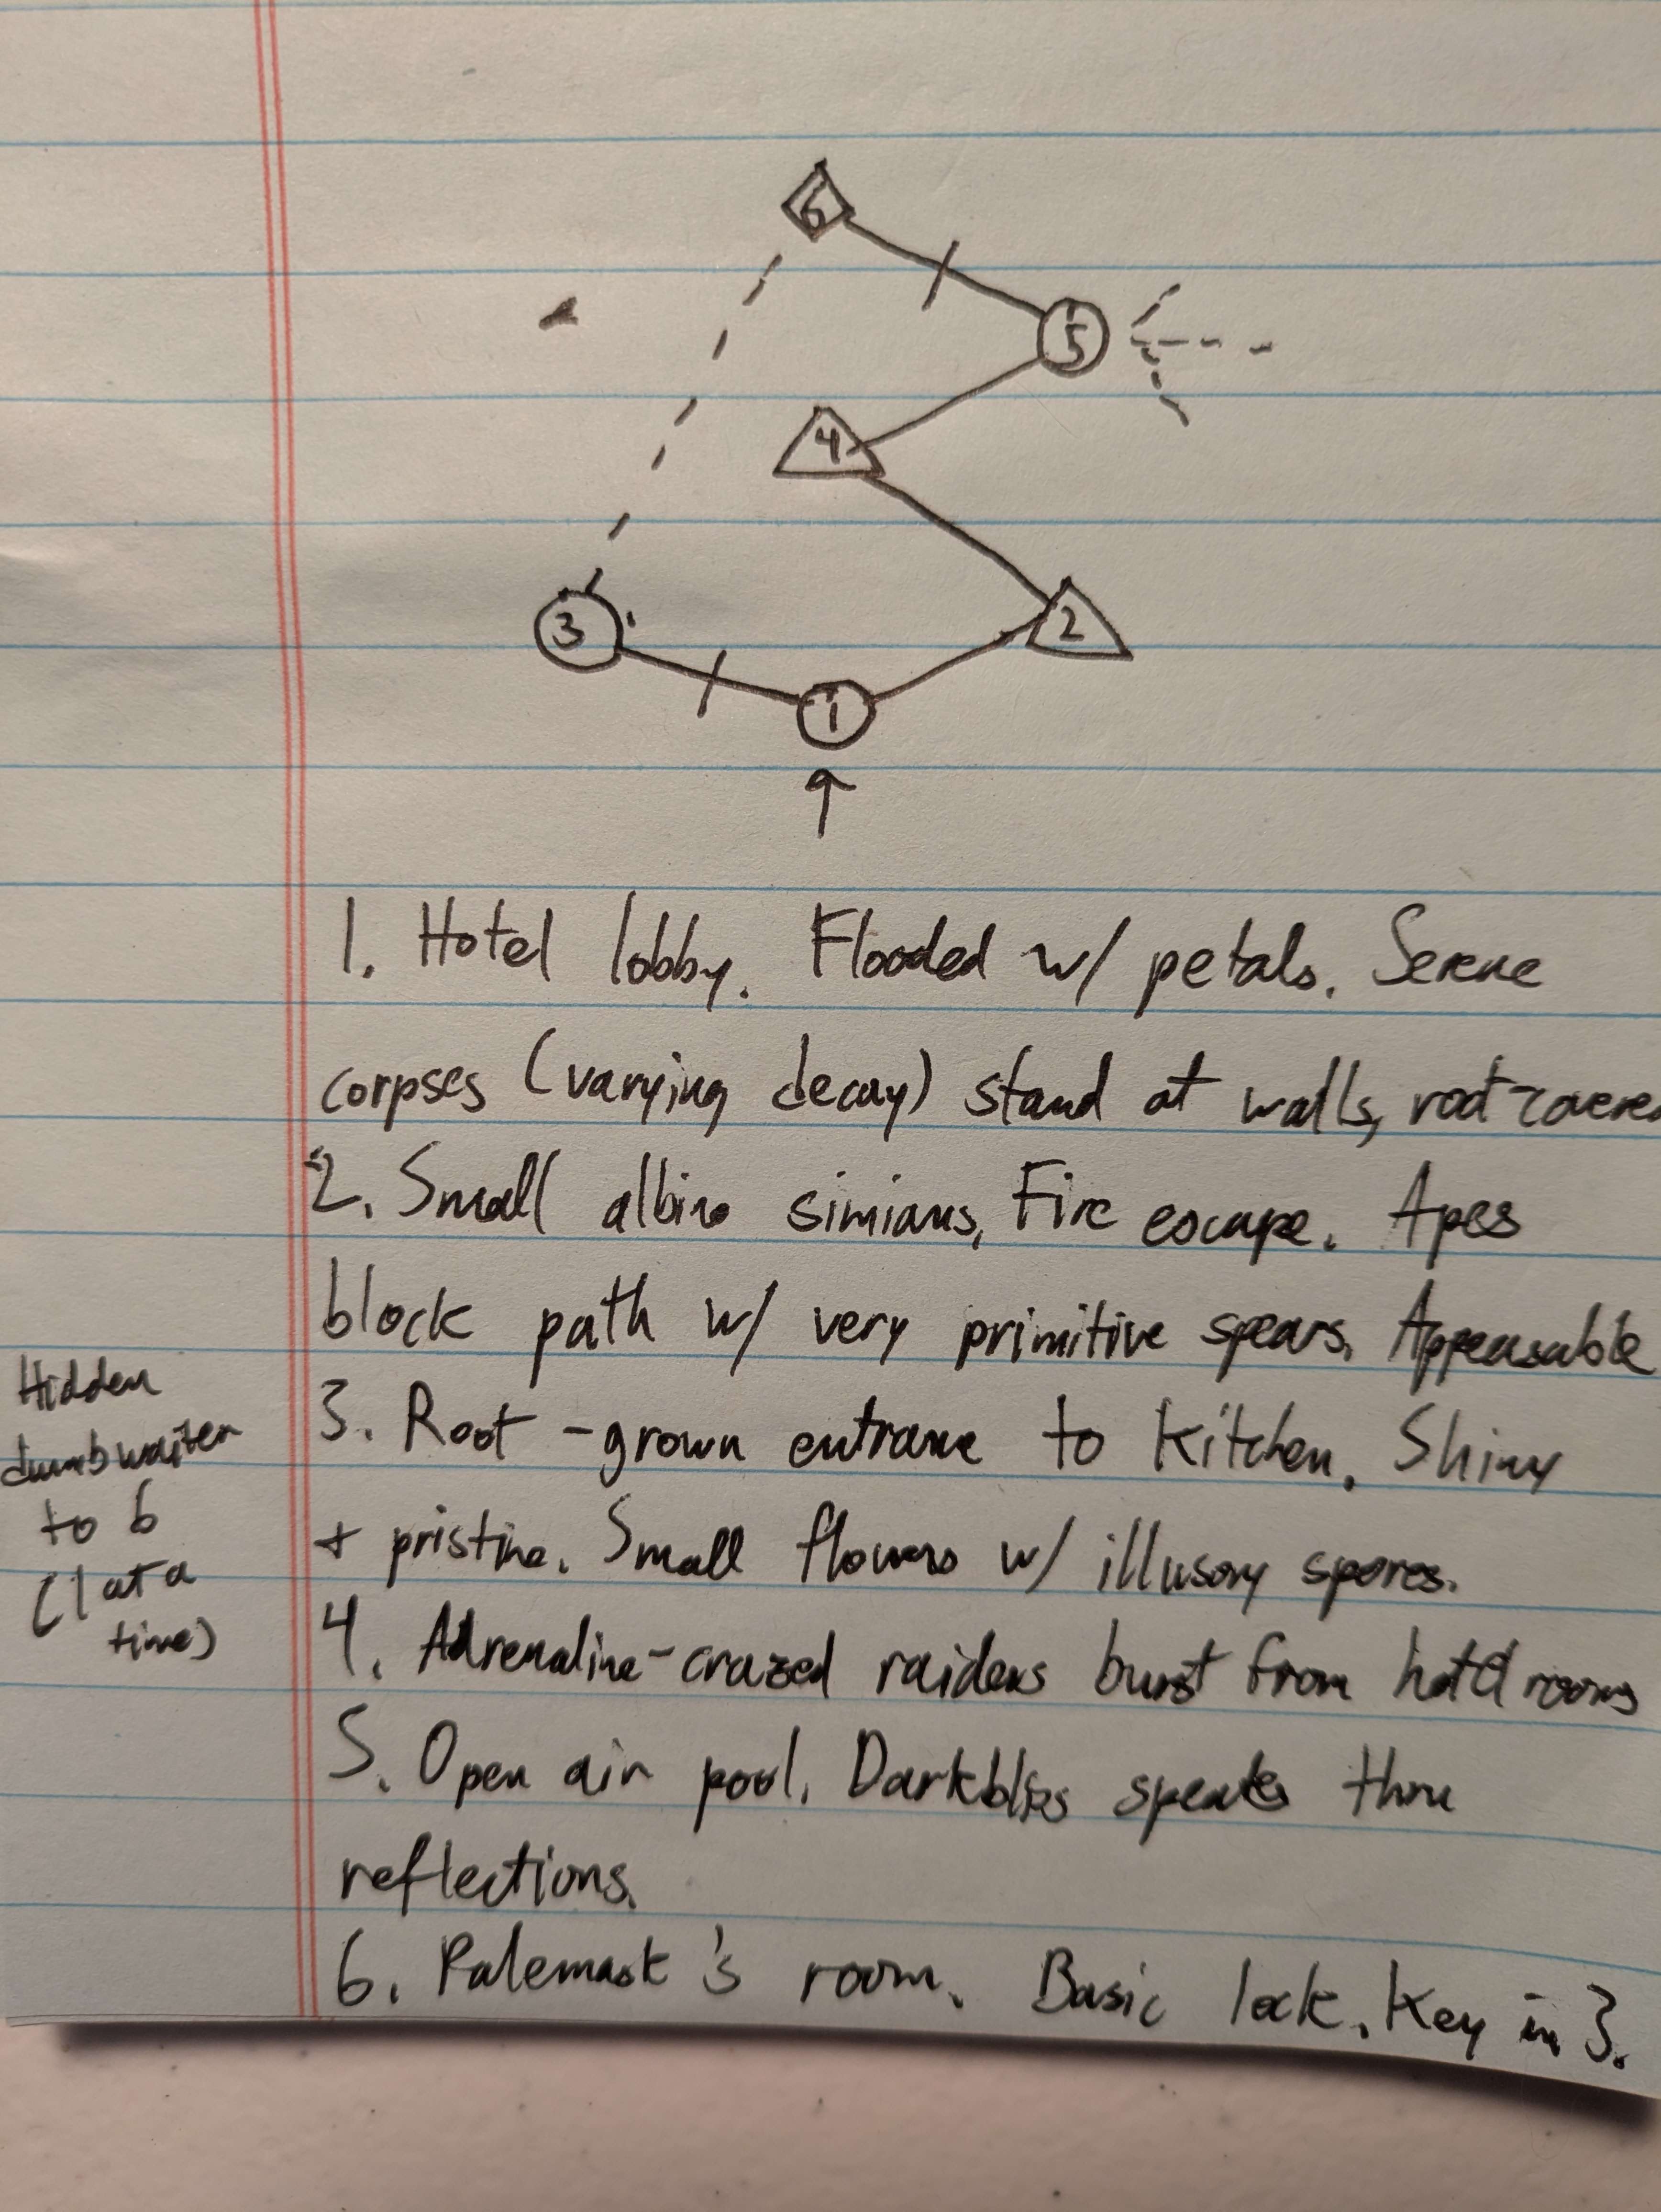 6
5
4
3
2
1
1. Hotel lobby. Flooded w/ petals. Serene
corpses (varying decay) stand at walls, root-covere
2. Small albino simians, Fire escape. Apes
block path w/ very primitive spears. Appeasable
Hidden
dumbwaiter
to 6
(1 at a
time)
3. Root-grown entrance to kitchen. Shiny
+ pristine. Small flowers w/ illusory spores.
4. Adrenaline-crazed raiders burst from hotel rooms
5. Open air pool. Darkbliss speaks thru
reflections.
6. Palemask's room. Basic lock. Key in 3.